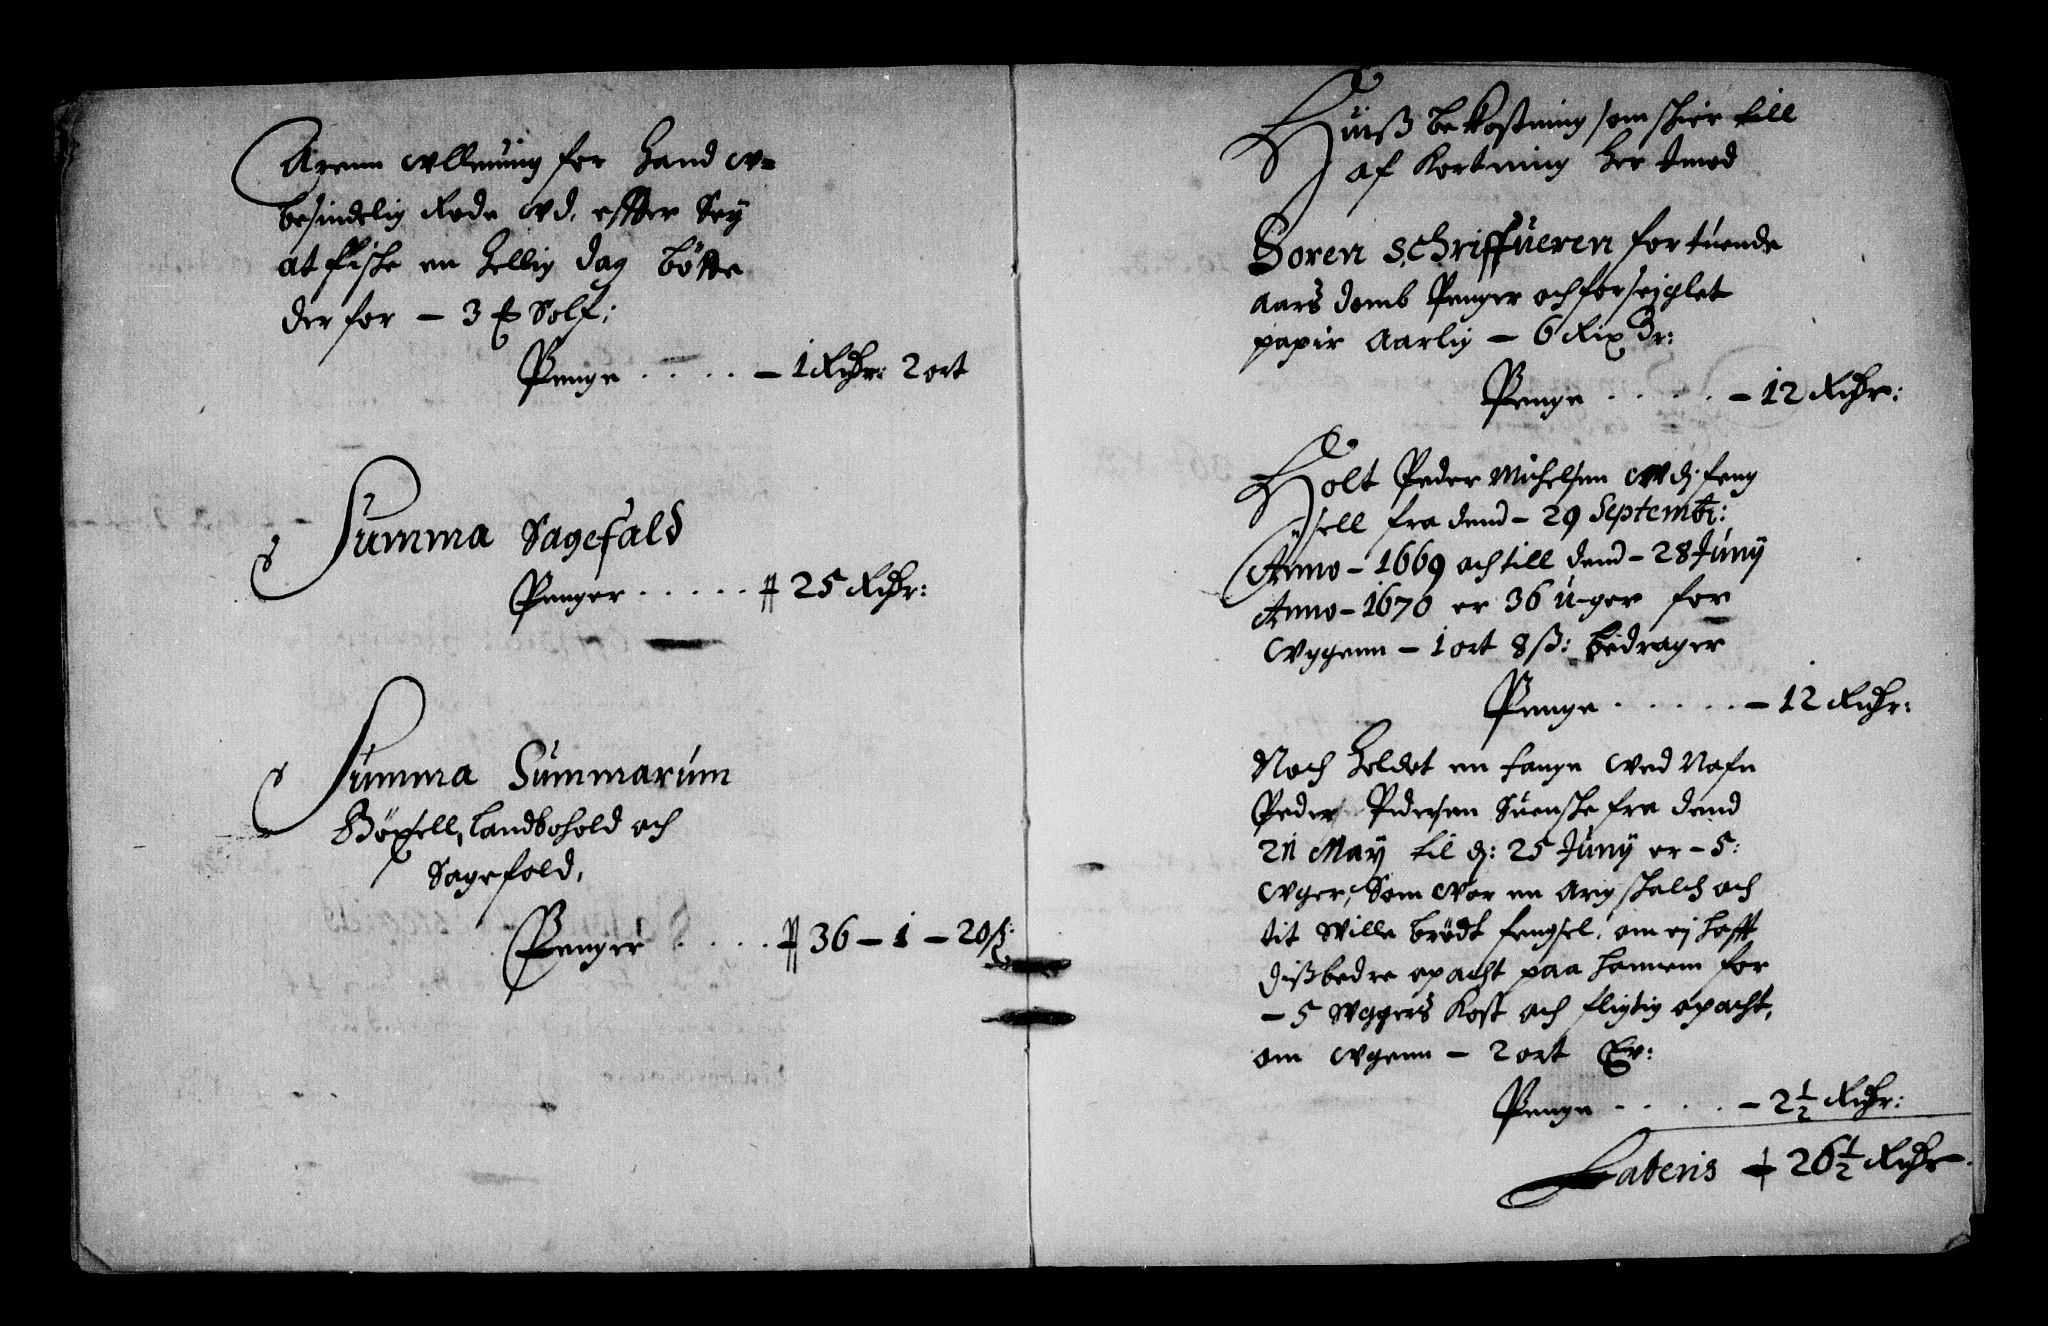 Arenn Ullenüng for hand u-
besindelig Rode ud, effter Sig
at fische en hellig dag bötte
der for — 3 # Sølf:
Penge . . . . — 1 Rdr: 2 ort
Summa Sagefald
Penger . . . . . # 25 Rdr:
Summa Summarum
Böxsell, landbohold och
Sagefold,
Penger . . . . # 36 — 1 — 20 ß:
Hüiß bekostning som schier till
af kortning her Imod
Soren Schriffüeren for tüende
aars domb Penger och forseiglet
papir Aarlig — 6 Rix dr:
Penge . . . . . — 12 Rdr:
Holt Peder Michelsen udj feng
sell fra dend — 29 Septembr:
Anno — 1669 och till dend — 28 Junÿ
Anno — 1670 er 36 ü-ger for
Uggenn — 1 ort 8 ß: bedrager
Penge . . . . . — 12 Rdr:
Noch holdet en fange Ved Nafn
Peder Pedersen Suenske fra dend
21 Maÿ til d: 25 Junÿ er — 5:
Uger, Som Var en Arig skalch och
tit Wille brödt fengsel, om ej hafft
dißbedre opacht paa hannem for
— 5 Uggers kost och fligtig opacht,
om Ugenn — 2 ort Er:
Penge . . . . . — 2 1/2 Rdr:
Lateris — 26 1/2 Rdr